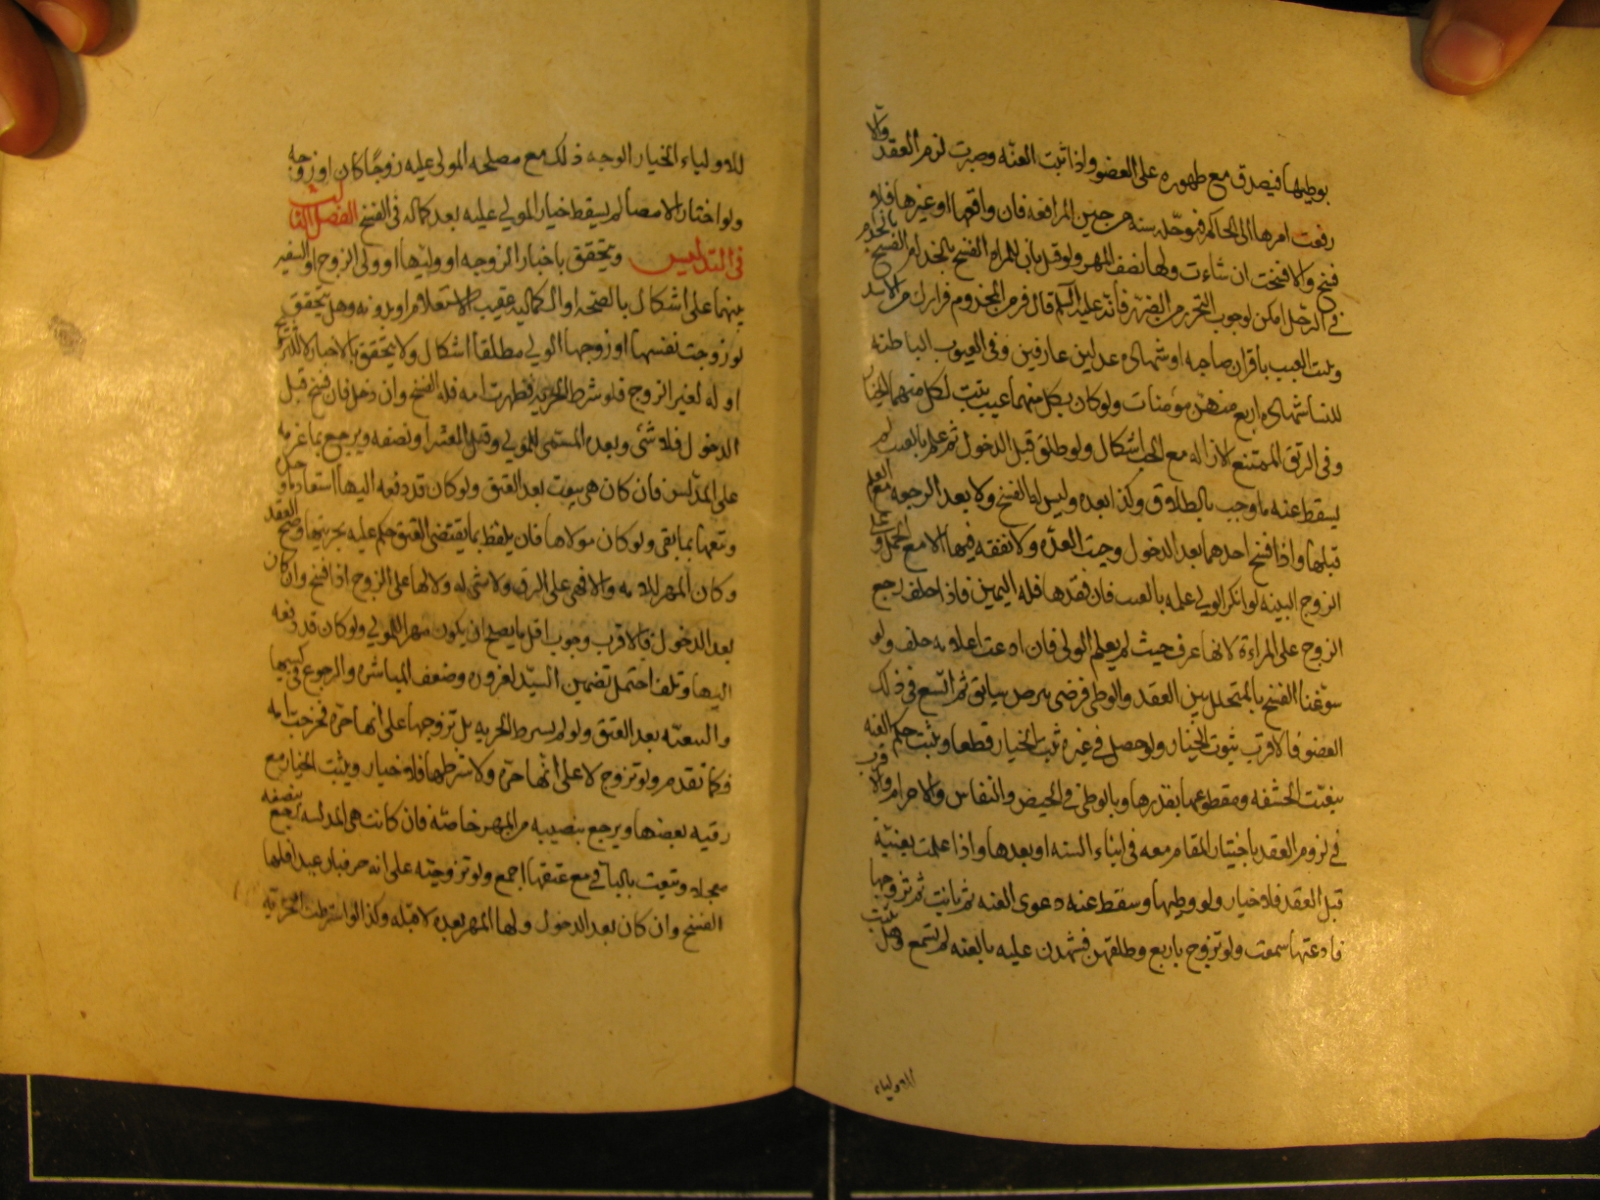 بوطيها فيصدق مع طهوره على العضو واذا ثبت العنه وصبرت لزم العقد والا
رفعت امرها الى الحاكم فيؤجله سنه من حين المرافعه فان واقعها او غيرها فلا
فسخ والا فسخت ان شاءت ولها نصف المهر ولو قيل بان للمراه الفسخ بالجذام
في الرجل امكن لوجوب التحرز من الضرر فانه عليه السلم قال فر من المجذوم فرارك من الاسد
وثبت العيب باقرار صاحبه او شهادة عدلين عارفين وفي العيوب الباطنه
للنسا شهادة اربع منهن مؤمنات ولو كان بكل منهما عيب يثبت لكل منهما الخيار
وفي الرتق الممتنع لازاله مع الجب اشكال ولو طلق قبل الدخول ثم علم بالعيب لم
يسقط عنه ما وجب بالطلاق وكذا بعده وليس له الفسخ ولا بعد الرجعه مع العلم
قبلها واذا فسخ احدهما بعد الدخول وجبت العدة ولا نفقه فيها الا مع الحمل وعلى
الزوج البينه لو انكر الولي علمه بالعيب فان فقدها فله اليمين فاذا حلف رجع
الزوج على المراءة لانها عرف حيث لم يعلم الولي فان ادعت اعلامه حلف ولو
سوغنا الفسخ بالمتخلل بين العقد والوطي فرضي ببرص سابق ثم اتسع في ذلك
العضو فالاقرب ثبوت الخيار ولو حصل في غيره ثبت الخيار قطعا ويثبت حكم العنه
بتغيب الحشفه ومقطوعها بقدرها وبالوطي في الحيض والنفاس والاحرام والاقرب
في لزوم العقد باختيار المقام معه في اثناء السنه او بعدها واذا علمت بعنته
قبل العقد فلا خيار ولو وطيها وسقط عنه دعوى العنه ثم بانت ثم تزوجها
فادعتها سمعت ولو تزوج باربع وطلقهن فشهدن عليه بالعنه لم تسمع وهل يثبت
للاولياء
للاولياء الخيار الوجه ذلك مع مصلحه المولى عليه زوجا كان او زوجه
ولو اختار الامضا لم يسقط خيار المولي عليه بعد كماله في الفسخ الفصل الثالث
في التدليس ويتحقق باخبار الزوجه او وليها او ولي الزوج او السفير
بينهما على اشكال بالصحه او الكماليه عقيب الاستعلام او بدونه وهل يتحقق
لو زوجت نفسها او زوجها الولي مطلقا اشكال ولا يتحقق بالاخبار لا للتزويج
او له لغير الزوج فلو شرط الحريه فظهرت امه فله الفسخ وان دخل فان فسخ قبل
الدخول فلا شئ وبعده المسمى للمولي وقيل العشر او نصفه ويرجع بما غرمه
على المدلس فان كان هي بيعت بعد العتق ولو كان قد دفعه اليها استعاد ما وجد
وتبعها بما بقى ولو كان مولاها فان يلفظ بما يقتضى العتق حكم عليه بحريتها وصح العقد
وكان المهر للامه والا فهي على الرق ولا شي له ولا لها على الزوج اذا فسخ وان كان
بعد الدخول فالاقرب وجوب اقل ما يصلح ان يكون مهرا للمولي ولو كان قد دفعه
اليها وتلف احتمل تضمين السيد لغروره وضعف المباشره والرجوع في كسبها
والتبعيه بعد العتق ولو لم يشرط الحريه بل تزوجها على انها حره فخرجت امه
فكما تقدم ولو تزوج لا على انها حرة ولا شرطها فلا خيار ويثبت الخيار مع
رقيه بعضها ويرجع بنصيبه من المهر خاصه فان كانت هي المدلسه رجع بنصفه
معجلا وتبعت بالباقي مع عتقها اجمع ولو تزوجته على انه حر فبان عبدا فلها
الفسخ وان كان بعد الدخول ولها المهر بعده لا قبله وكذا لو اشترطت الحريه